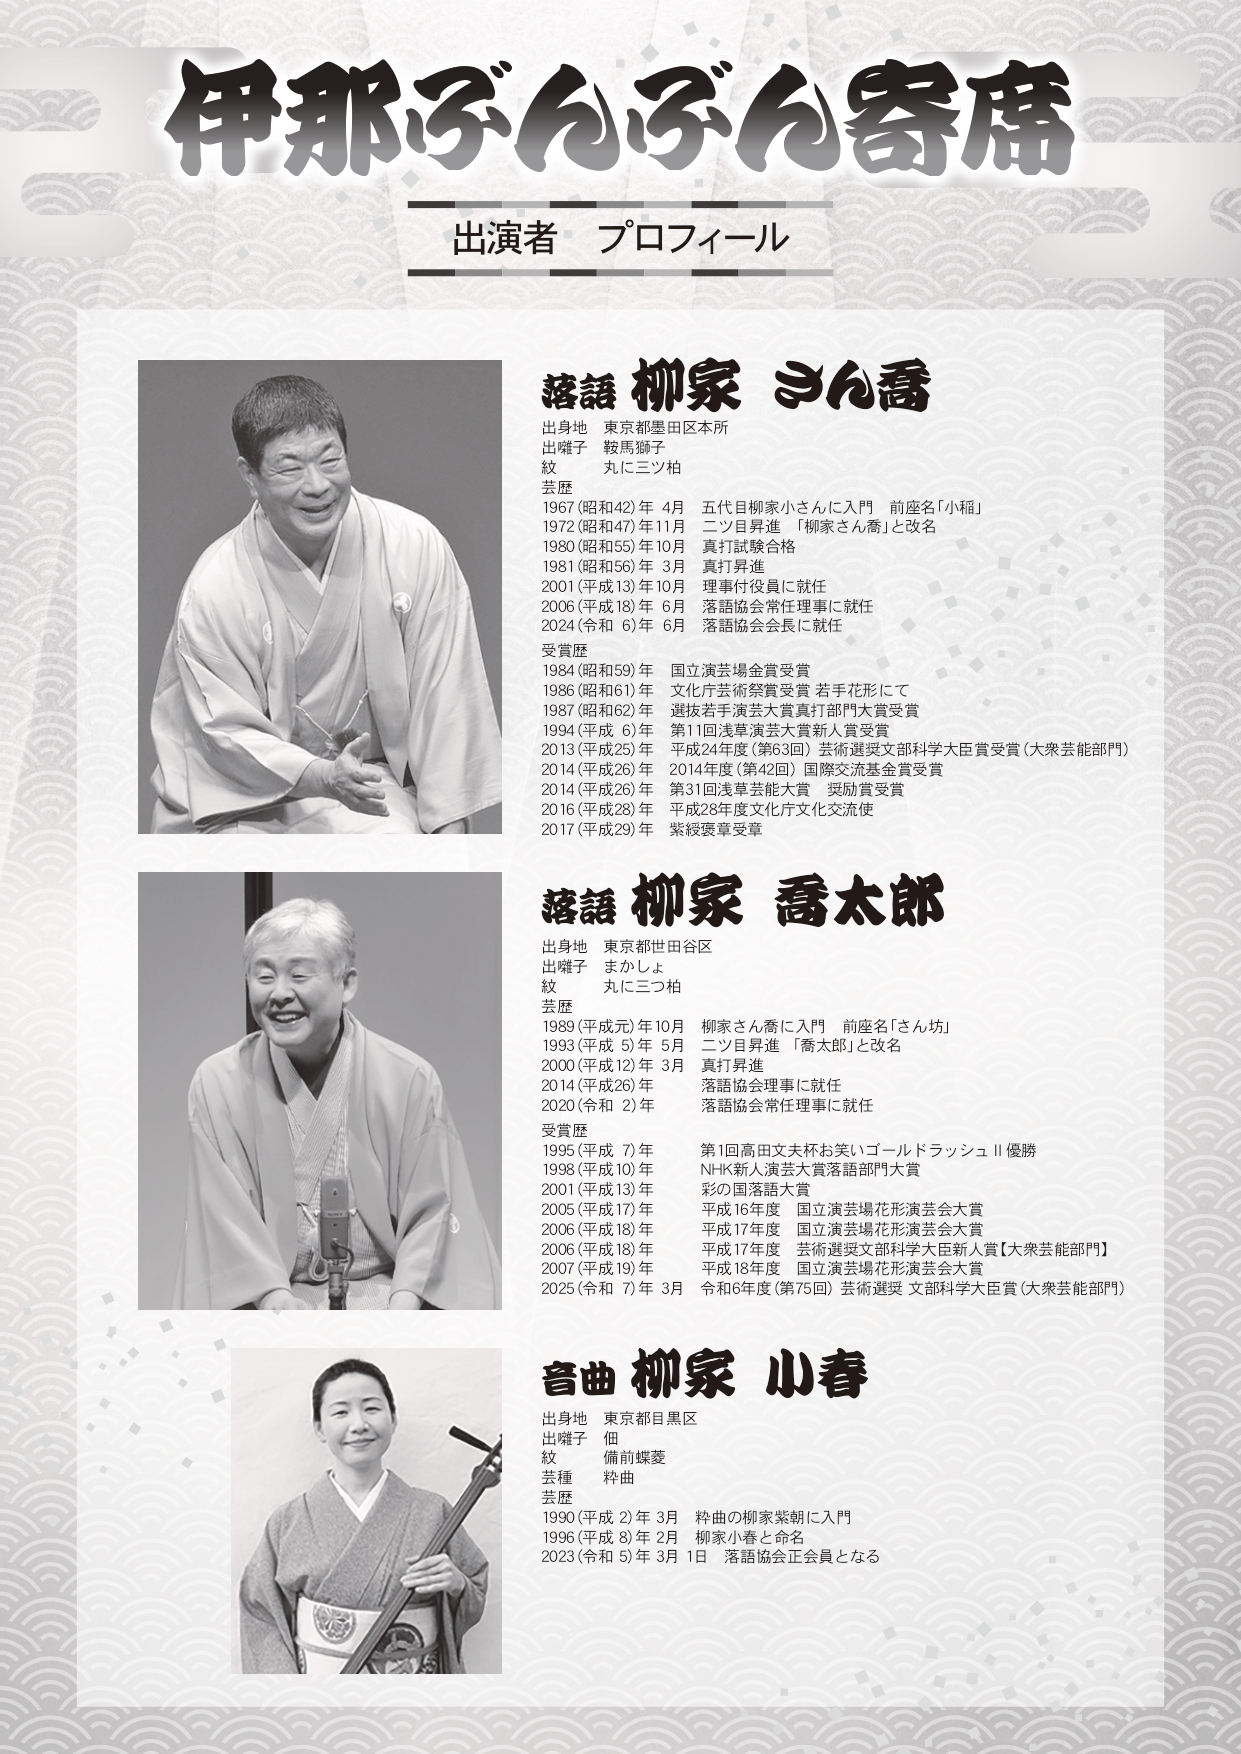 伊那ぶんぶん寄席
出演者　プロフィール
落語 柳家 さん喬
出身地　東京都墨田区本所
出囃子　鞍馬獅子
紋　　　丸に三ツ柏
芸歴
1967(昭和42)年 4月　五代目柳家小さんに入門　前座名「小稲」
1972(昭和47)年11月　二ツ目昇進　「柳家さん喬」と改名
1980(昭和55)年10月　真打試験合格
1981(昭和56)年 3月　真打昇進
2001(平成13)年10月　理事付役員に就任
2006(平成18)年 6月　落語協会常任理事に就任
2024(令和 6)年 6月　落語協会会長に就任
受賞歴
1984(昭和59)年　国立演芸場金賞受賞
1986(昭和61)年　文化庁芸術祭賞受賞 若手花形にて
1987(昭和62)年　選抜若手演芸大賞真打部門大賞受賞
1994(平成 6)年　第11回浅草演芸大賞新人賞受賞
2013(平成25)年　平成24年度(第63回) 芸術選奨文部科学大臣賞受賞(大衆芸能部門)
2014(平成26)年　2014年度(第42回) 国際交流基金賞受賞
2014(平成26)年　第31回浅草芸能大賞　奨励賞受賞
2016(平成28)年　平成28年度文化庁文化交流使
2017(平成29)年　紫綬褒章受章
落語 柳家 喬太郎
出身地　東京都世田谷区
出囃子　まかしょ
紋　　　丸に三つ柏
芸歴
1989(平成元)年10月　柳家さん喬に入門　前座名「さん坊」
1993(平成 5)年 5月　二ツ目昇進　「喬太郎」と改名
2000(平成12)年 3月　真打昇進
2014(平成26)年　　　落語協会理事に就任
2020(令和 2)年　　　落語協会常任理事に就任
受賞歴
1995(平成 7)年　　　第1回高田文夫杯お笑いゴールドラッシュⅡ優勝
1998(平成10)年　　　NHK新人演芸大賞落語部門大賞
2001(平成13)年　　　彩の国落語大賞
2005(平成17)年　　　平成16年度　国立演芸場花形演芸会大賞
2006(平成18)年　　　平成17年度　国立演芸場花形演芸会大賞
2006(平成18)年　　　平成17年度　芸術選奨文部科学大臣新人賞【大衆芸能部門】
2007(平成19)年　　　平成18年度　国立演芸場花形演芸会大賞
2025(令和 7)年 3月　令和6年度(第75回) 芸術選奨 文部科学大臣賞(大衆芸能部門)
音曲 柳家 小春
出身地　東京都目黒区
出囃子　佃
紋　　　備前蝶菱
芸種　　粋曲
芸歴
1990(平成 2)年 3月　粋曲の柳家紫朝に入門
1996(平成 8)年 2月　柳家小春と命名
2023(令和 5)年 3月 1日　落語協会正会員となる